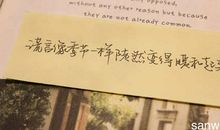 without any other reason but because
they are not already common.
诺言像季节一样陡然变得暖和起
sanw